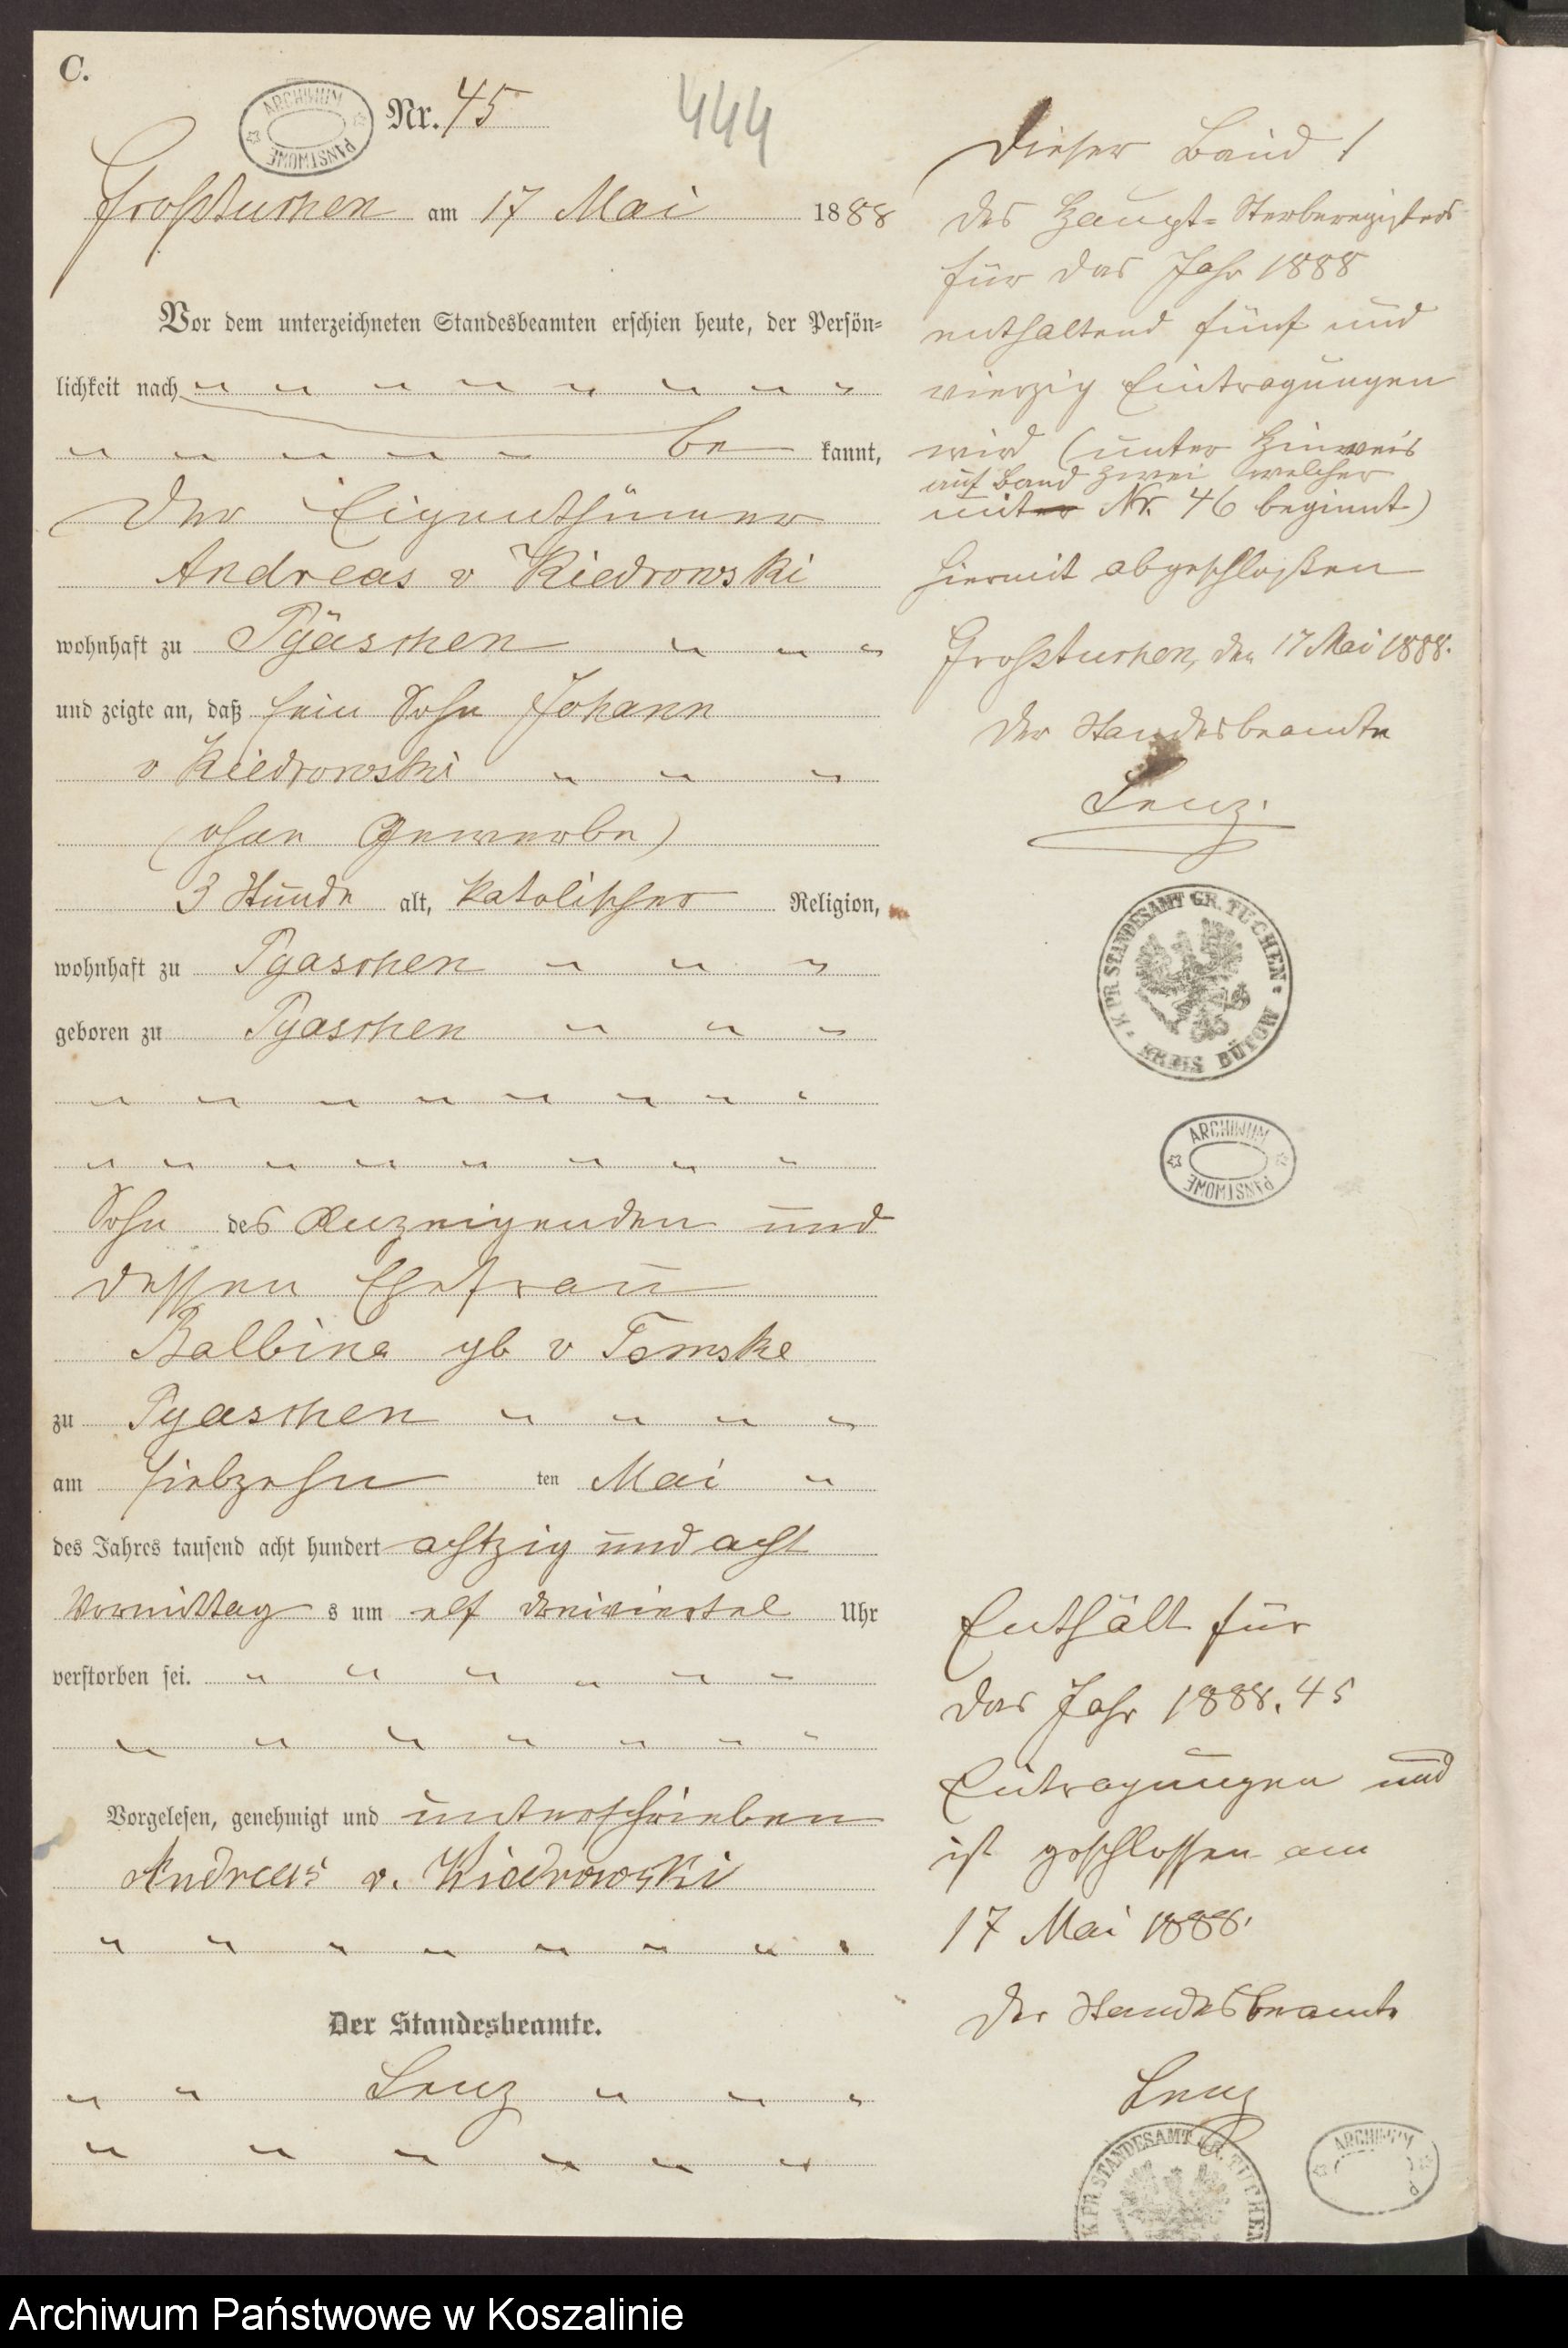 C.
Nr. 45
444
Großtuchen am 17 Mai 1888
Vor dem unterzeichneten Standesbeamten erschien heute, der Persön-
lichkeit nach
be kannt,
der Eigenthümer
Andreas v Kiedrowski
wohnhaft zu Pyaschen
und zeigte an, daß sein Sohn Johann
v Kiedrowski
(ohne Gewerbe)
3 Stunde alt, katolischer Religion,
wohnhaft zu Pyaschen
geboren zu Pyaschen
Sohn des Anzeigenden und
dessen Ehefrau
Balbina gb v
zu Pyaschen
am siebzehn ten Mai
des Jahres tausend acht hundert achtzig und acht
Vormittag s um elf dreiviertel Uhr
verstorben sei.
Vorgelesen, genehmigt und unterschrieben
Andreas v. Kiedrowski
Der Standesbeamte.
Lenz
Dieser Band 1
des Haupt-Sterberegisters
für das Jahr 1888
enthaltend fünf und
vierzig Eintragungen
wird (unter Hinweis
auf Band zwei welcher
mit Nr. 46 beginnt)
hiermit abgeschloßen
Großtuchen, den 17 Mai 1888.
Der Standesbeamte
Lenz.
K. PR. STANDESAMT GR. TUCHEN
KREIS BÜTOW
ARCHIWUM
PAŃSTWOWE
Enthält für
das Jahr 1888. 45
Eintragungen und
ist geschlossen am
17 Mai 1888.
Der Standesbeamte
Lenz
K PR STANDESAMT GR. TUCHEN
ARCHIWUM
Archiwum Państwowe w Koszalinie